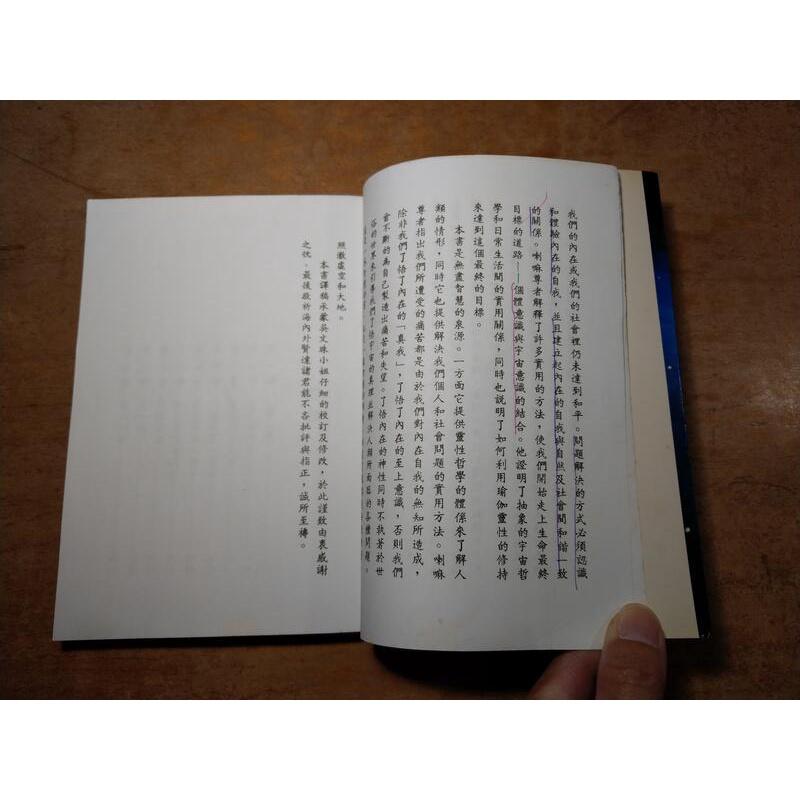 我們的內在或我們的社會裡仍未達到和平。問題解決的方式必須認識
和體驗內在的自我，並且建立起內在的自我與自然及社會間和諧一致
的關係。喇嘛尊者解釋了許多實用的方法，使我們開始走上生命最終
目標的道路——個體意識與宇宙意識的結合。他證明了抽象的宇宙哲
學和日常生活間的實用關係，同時也說明了如何利用瑜伽靈性的修持
來達到這個最終的目標。
本書是無盡智慧的泉源。一方面它提供靈性哲學的體係來了解人
類的情形，同時它也提供解決我們個人和社會問題的實用方法。喇嘛
尊者指出我們所遭受的痛苦都是由於我們對內在自我的無知所造成，
除非我們了悟了內在的「真我」，了悟了內在的至上意識，否則我們
會不斷的為自己製造出痛苦和失望。了悟內在的神性同時不執著於世
俗的世界來引導我們了悟宇宙的真理並解決人類所面臨的各種問題。
照澈虛空和大地。
本書譯稿承蒙吳文珠小姐仔細的校訂及修改，於此謹致由衷感謝
之忱。最後敬祈海內外賢達諸君能不吝批評與指正，誠所至禱。